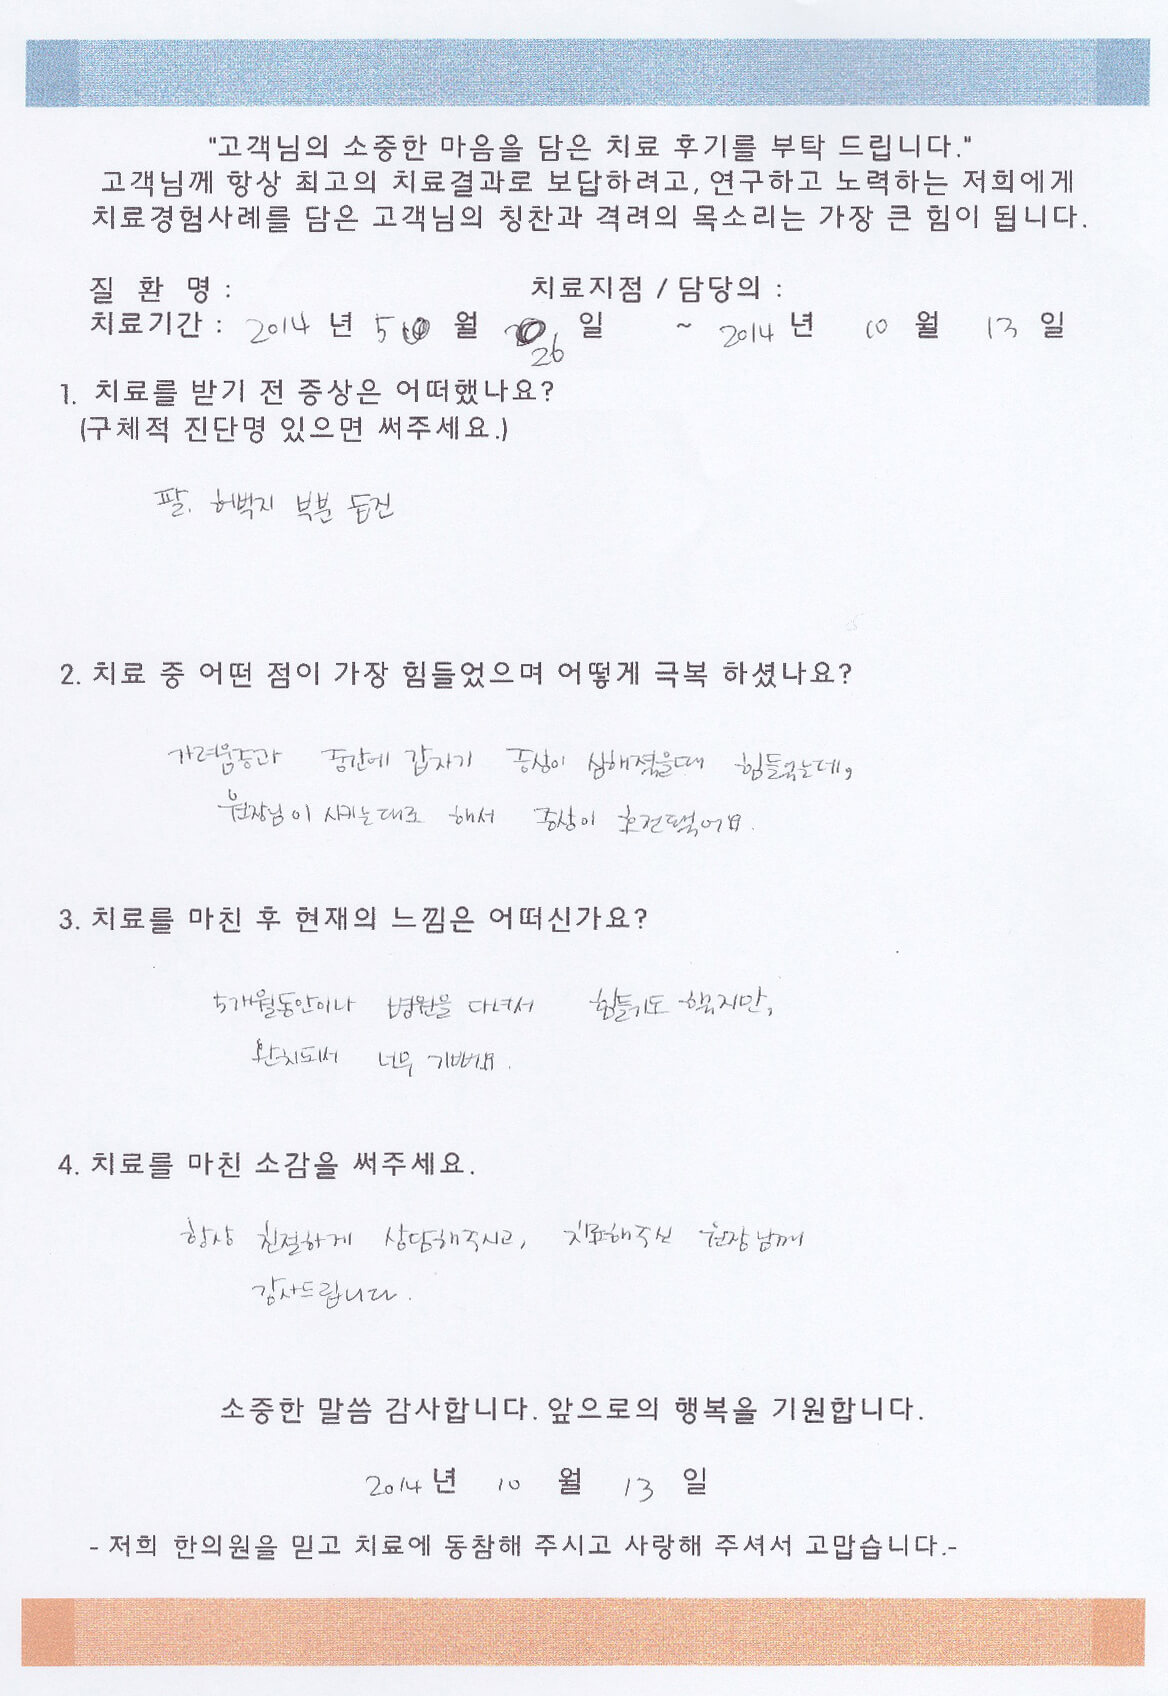 "고객님의 소중한 마음을 담은 치료 후기를 부탁 드립니다."
고객님께 항상 최고의 치료결과로 보답하려고, 연구하고 노력하는 저희에게
치료경험사례를 담은 고객님의 칭찬과 격려의 목소리는 가장 큰 힘이 됩니다.
질 환 명 : 치료지점 / 담당의 :
치료기간 : 2014 년 5 월 26 일 ~ 2014 년 10 월 13 일
1. 치료를 받기 전 증상은 어떠했나요?
(구체적 진단명 있으면 써주세요.)
팔, 허벅지 부분 돋진
2. 치료 중 어떤 점이 가장 힘들었으며 어떻게 극복 하셨나요?
가려움증과 중간에 갑자기 증상이 심해졌을때 힘들었는데,
원장님이 시키는대로 해서 증상이 호전됐어요.
3. 치료를 마친 후 현재의 느낌은 어떠신가요?
5개월동안이나 병원을 다녀서 힘들기도 했지만,
완치되서 너무 기뻐요.
4. 치료를 마친 소감을 써주세요.
항상 친절하게 상담해주시고, 치료해주신 원장님께
감사드립니다.
소중한 말씀 감사합니다. 앞으로의 행복을 기원합니다.
2014 년 10 월 13 일
- 저희 한의원을 믿고 치료에 동참해 주시고 사랑해 주셔서 고맙습니다.-